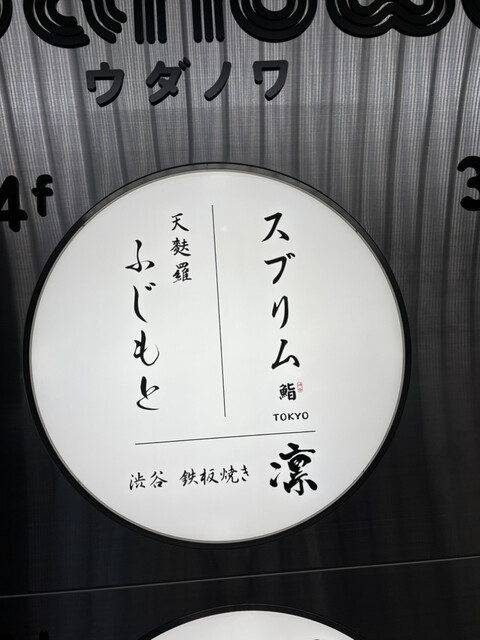 ウダノワ
4f
3
スブリム
鮨
TOKYO
天麩羅
ふじもと
渋谷 鉄板焼き 凛